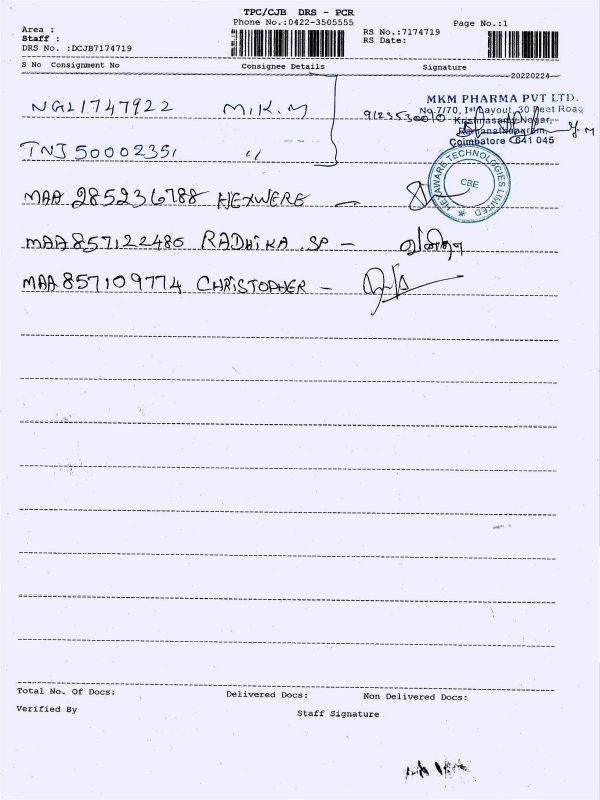 TPC/CJB DRS - PCR
Phone No.:0422-3505555
Page No.:1
Area :
Staff :
DRS No. :DCJB7174719
RS No.:7174719
RS Date:
S No Consignment No Consignee Details Signature
20220224
NGL1747922 M.K.M 9123530010
MKM PHARMA PVT LTD.
No.7/70, Ist Layout, 30 Feet Road
Krishnasamy Nagar,
Ramanathapuram,
Coimbatore 641 045
TNJ50002351 "
HEXAWARE TECHNOLOGIES LIMITED
CBE
MAA 285236788 HEXWERE -
MAA857122480 RADHIKA .SP -
MAA857109774 CHRISTOPHER -
Total No. Of Docs: Delivered Docs: Non Delivered Docs:
Verified By
Staff Signature